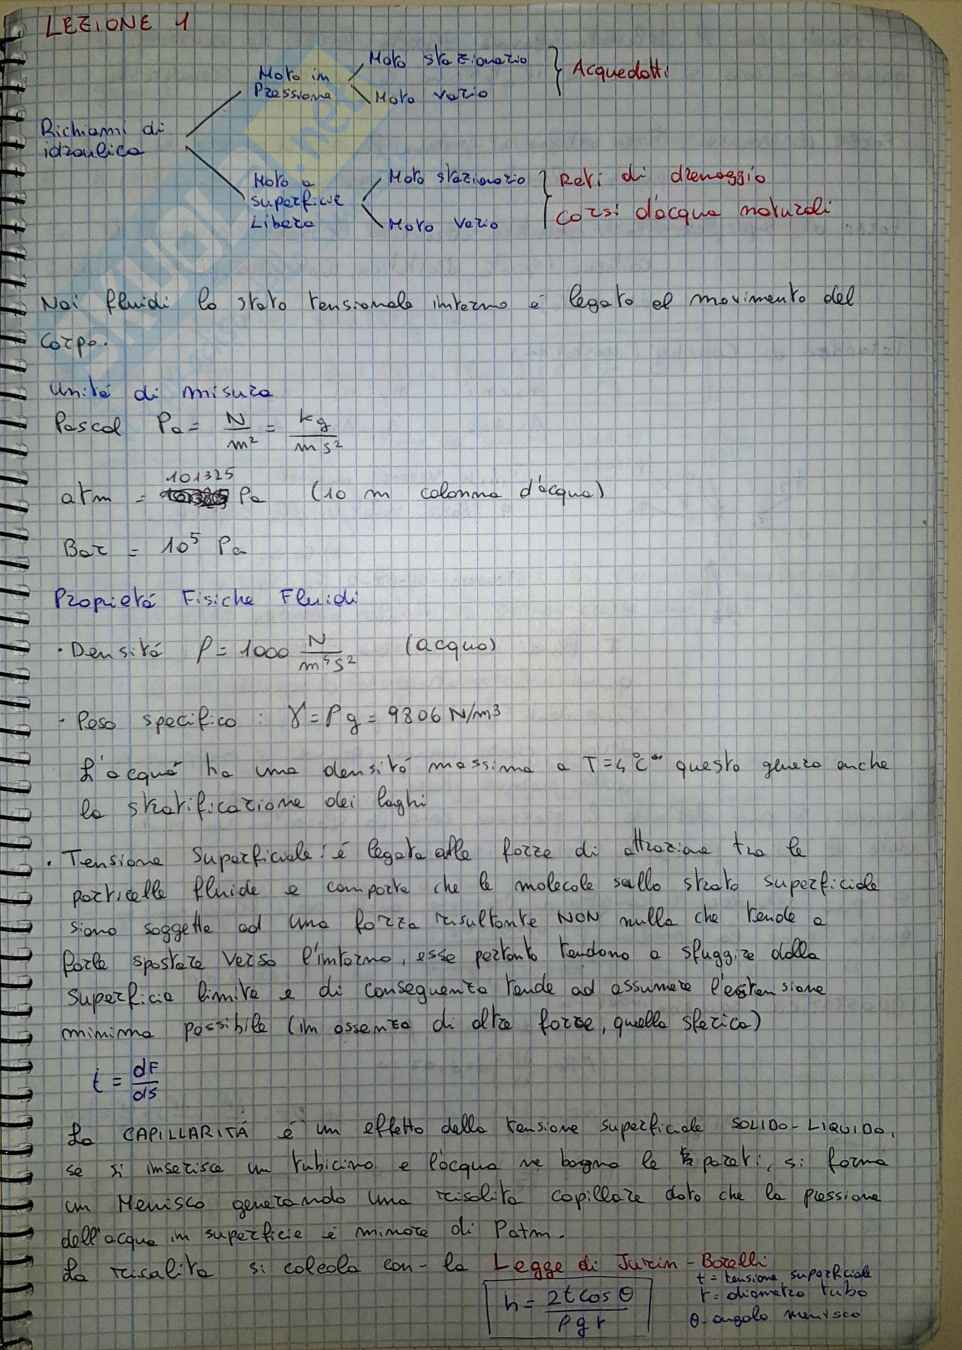 LEZIONE 1
Richiami di idraulica
Moto in Pressione
Moto stazionario
Moto vario
Acquedotti
Moto a superficie Libera
Moto stazionario
Moto vario
Reti di drenaggio
Corsi d'acqua naturali
Nei fluidi lo stato tensionale interno è legato al movimento del
corpo.
Unità di misura
Pascal Pa = N/m² = kg/m s²
atm = 101325 Pa (10 m colonna d'acqua)
Bar = 10⁵ Pa
Proprietà Fisiche Fluidi
· Densità ρ = 1000 N/m⁴s² (acqua)
· Peso specifico : γ = ρg = 9806 N/m³
L'acqua ha una densità massima a T=4°C questo genera anche
la stratificazione dei laghi
· Tensione Superficiale: è legata alle forze di attrazione tra le
particelle fluide e comporta che le molecole sullo strato superficiale
siano soggette ad una forza risultante NON nulla che tende a
farle spostare verso l'interno, esse pertanto tendono a sfuggire dalla
superficie limite e di conseguenza tende ad assumere l'estensione
minima possibile (in assenza di altre forze, quella sferica)
t = dF/ds
La CAPILLARITÀ è un effetto della tensione superficiale SOLIDO-LIQUIDO,
se si inserisce un tubicino e l'acqua ne bagna le pareti, si forma
un Menisco generando una risalita capillare dato che la pressione
dell'acqua in superficie è minore di Patm.
La risalita si calcola con la Legge di Jurin-Borelli
h = 2t cos θ / ρ g r
t = tensione superficiale
r = diametro tubo
θ = angolo menisco